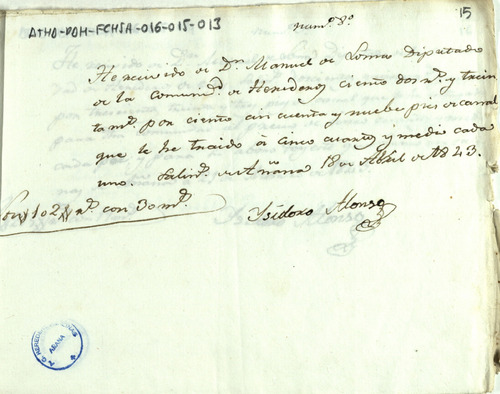 ATHO-DOH-FCHSA-016-015-013
15
num.º 8.º
He recivido de Dn Manuel de Lomas Diputado
de la Comunid.d de Herederos ciento dos r.s y trein
ta m.s por ciento cincuenta y nuebe pies de carral
que le he traido á cinco cuartos y medio cada
uno. Salin.s de Añana 18 de Abril de 1843.
Son 102 r.s con 30 m.s
Isidoro Alonso
AÑANA